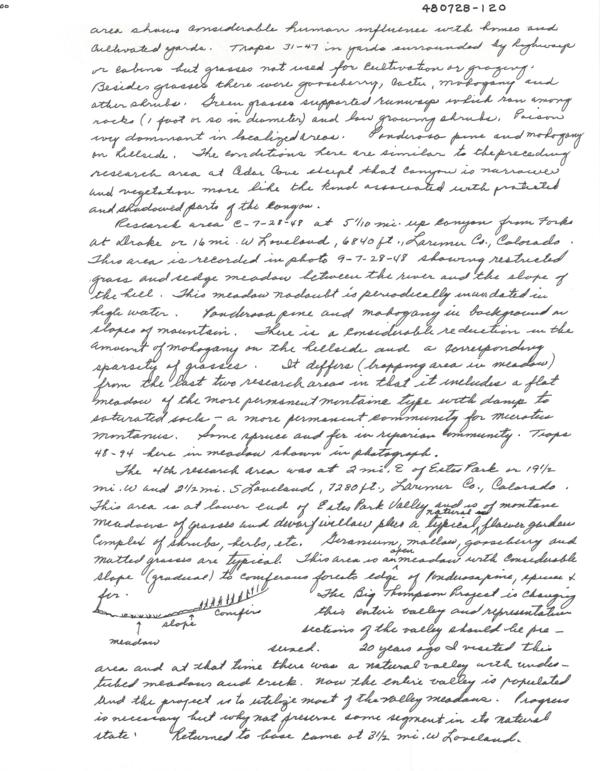 480728-120
area shows considerable human influence with homes and
cultivated yards. Traps 31-47 in yards surrounded by highways
or cabins but grasses not used for cultivation or grazing.
Besides grasses there were gooseberry, cacti, mohogany and
other shrubs. Green grasses supported runways which ran among
rocks (1 foot or so in diameter) and low growing shrubs. Poison
ivy dominant in localized areas. Ponderosa pine and mohogany
on hillside. The conditions here are similar to the preceding
research area at Cedar Cove except that canyon is narrower
and vegetation more like the kind associated with protected
and shadowed parts of the canyon.
Research area C-7-28-48 at 5 4/10 mi. up canyon from Forks
at Drake or 16 mi. W Loveland, 6840 ft., Larimer Co., Colorado.
This area is recorded in photo 9-7-28-48 showing restricted
grass and sedge meadow between the river and the slope of
the hill. This meadow no doubt is periodically inundated in
high water. Ponderosa pine and mohogany in background on
slopes of mountain. There is a considerable reduction in the
amount of mohogany on the hillside and a corresponding
sparsity of grasses. It differs (trapping area in meadow)
from the last two research areas in that it includes a flat
meadow of the more permanent montaine type with damp to
saturated soils - a more permanent community for microtus
montanus. Some spruce and fir in reparian community. Traps
48-94 here in meadow shown in photograph.
The 4th research area was at 2 mi. E of Estes Park or 19 1/2
mi. W and 2 1/2 mi. S Loveland, 7280 ft., Larimer Co., Colorado.
This area is at lower end of Estes Park Valley and is of montane
meadows of grasses and dwarf willow plus a typical, natural flower garden
complex of shrubs, herbs, etc. Geranium, mallow, gooseberry and
matted grasses are typical. This area is an open meadow with considerable
slope (gradual) to coniferous forests edge of Ponderosa pine, spruce &
fir. The Big Thompson Project is changing
this entire valley and representative
sections of the valley should be pre-
served. 20 years ago I visited this
meadow
slope
conifers
area and at that time there was a natural valley with undis-
turbed meadows and creek. Now the entire valley is populated
and the project is to utilize most of the valley meadows. Progress
is necessary but why not preserve some segment in its natural
state. Returned to base camp at 3 1/2 mi. W Loveland.